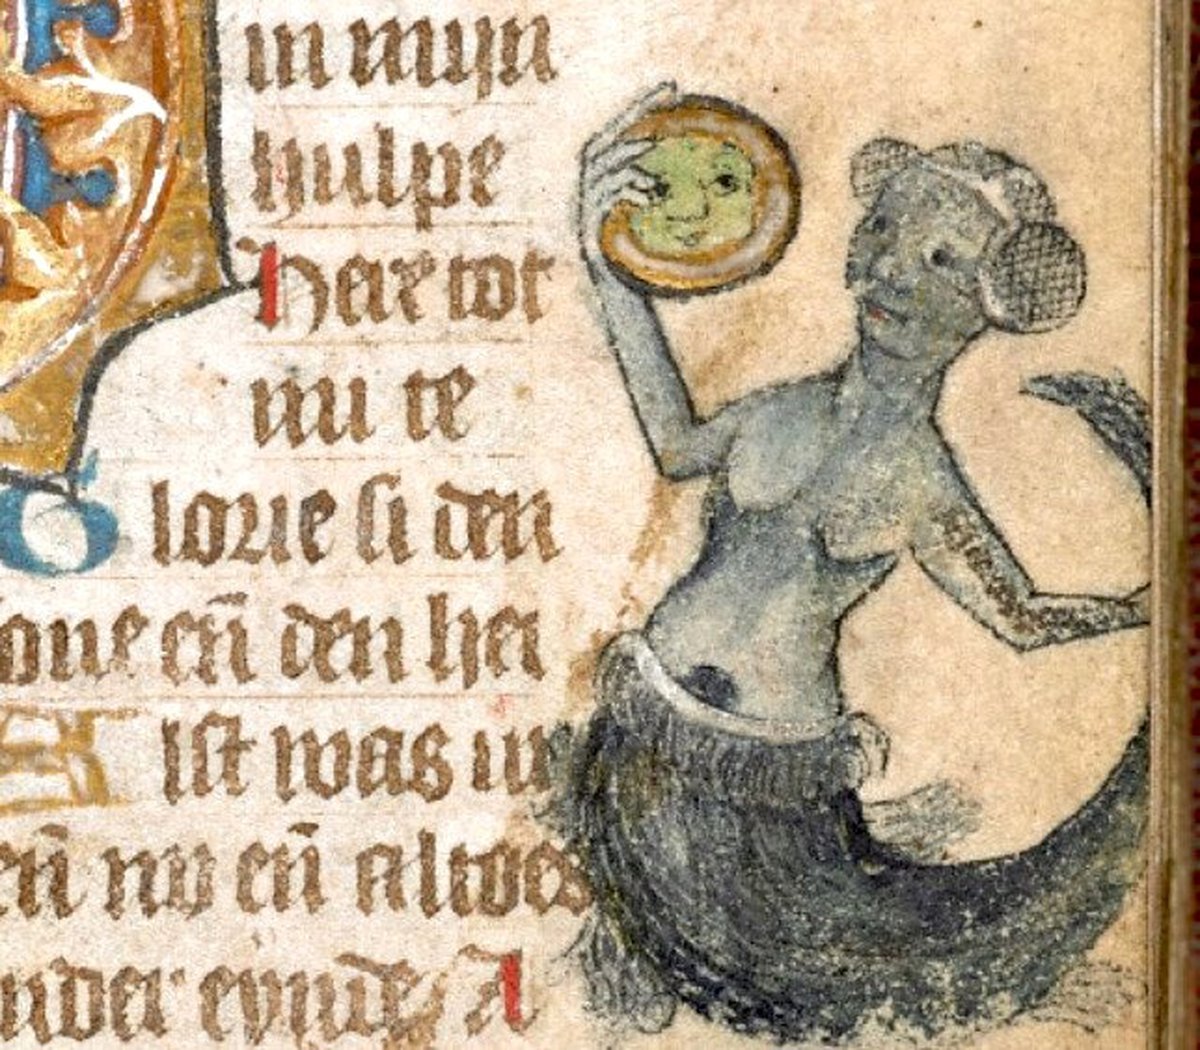 in mijn
hulpe
Here tot
mi te
Glorie si den
sone eñ den hei
Alst was in
eñ nv eñ altoes
nder eynde A